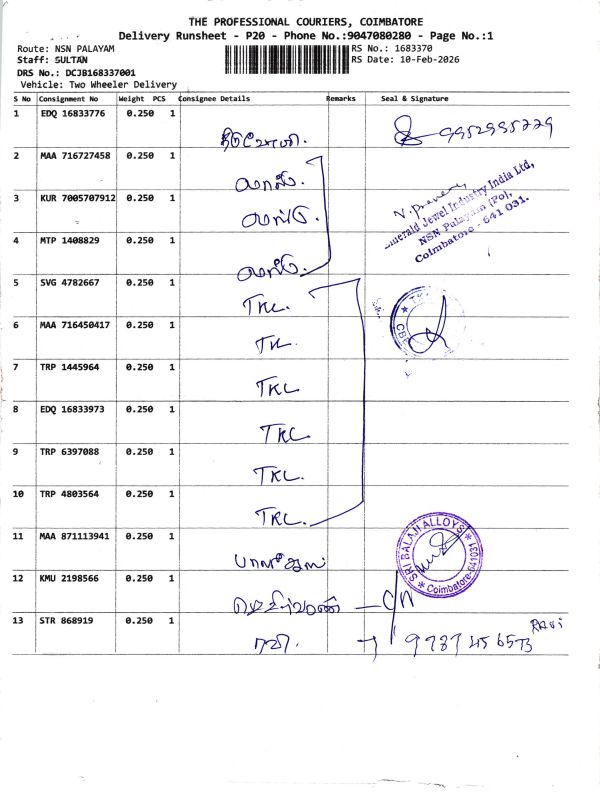 THE PROFESSIONAL COURIERS, COIMBATORE
Delivery Runsheet - P20 - Phone No.:9047080280 - Page No.:1
Route: NSN PALAYAM
RS No.: 1683370
Staff: SULTAN
RS Date: 10-Feb-2026
DRS No.: DCJB168337001
Vehicle: Two Wheeler Delivery
S No Consignment No Weight PCS Consignee Details Remarks Seal & Signature
1 EDQ 16833776 0.250 1
9952995229
2 MAA 716727458 0.250 1
3 KUR 7005707912 0.250 1
Emerald Jewel Industry India Ltd,
NSN Palayam (Po),
Coimbatore - 641 031.
4 MTP 1408829 0.250 1
5 SVG 4782667 0.250 1
TKL.
6 MAA 716450417 0.250 1
TKL
7 TRP 1445964 0.250 1
TKL
8 EDQ 16833973 0.250 1
TKL.
9 TRP 6397088 0.250 1
TKL.
10 TRP 4803564 0.250 1
TKL.
11 MAA 871113941 0.250 1
SRI BALAJI ALLOYS
Coimbatore-641031
12 KMU 2198566 0.250 1
13 STR 868919 0.250 1
ரவி.
9787456573
Ravi